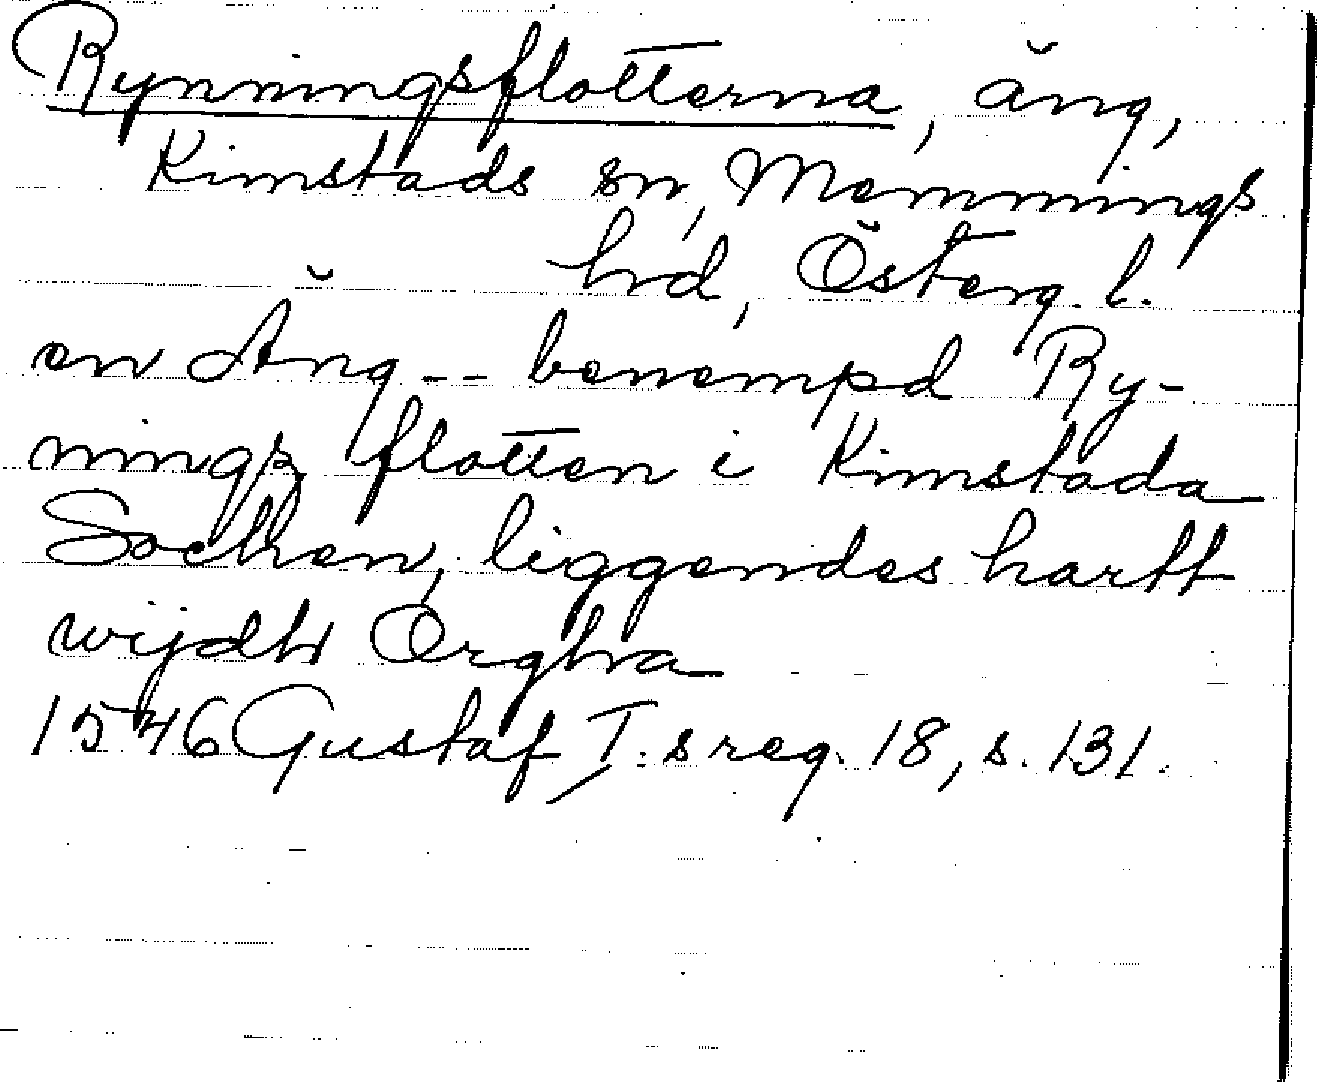 Rynningsflotterna, äng,
Kimstads sn, Memmings
hd, Österg. l.
en Äng -- benempd Ry-
nings flotten i Kimstada
Sochen, liggendes hartt
wijdh Örgha
1546 Gustaf I:s reg. 18, s. 131.